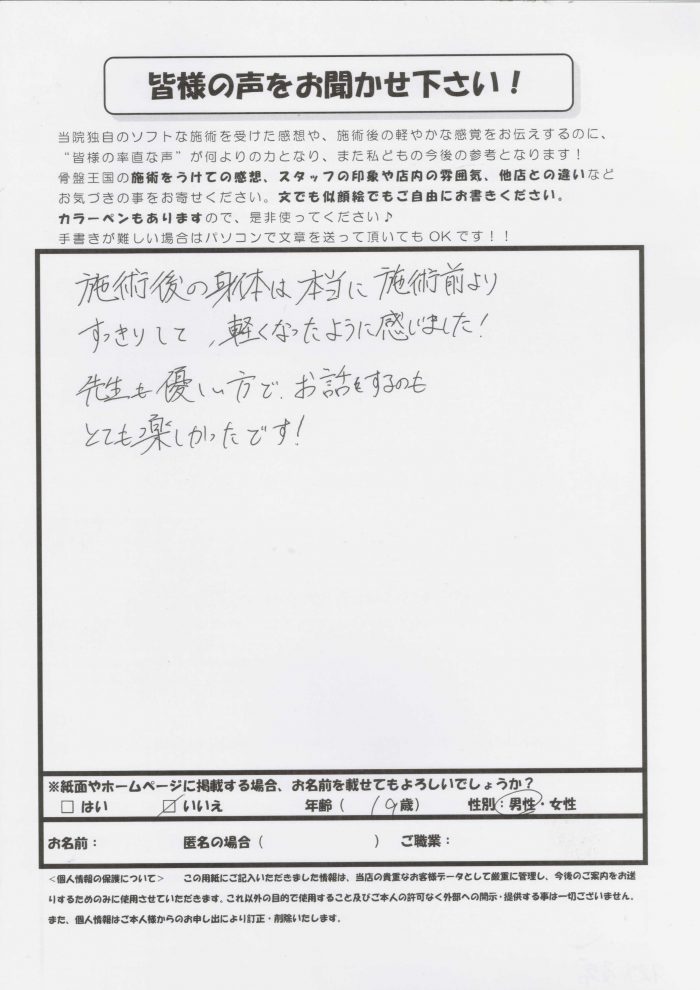 皆様の声をお聞かせ下さい！
当院独自のソフトな施術を受けた感想や、施術後の軽やかな感覚をお伝えするのに、
“皆様の率直な声”が何よりの力となり、また私どもの今後の参考となります！
骨盤王国の施術をうけての感想、スタッフの印象や店内の雰囲気、他店との違いなど
お気づきの事をお寄せください。文でも似顔絵でもご自由にお書きください。
カラーペンもありますので、是非使ってください♪
手書きが難しい場合はパソコンで文章を送って頂いてもOKです！！
施術後の身体は本当に施術前より
すっきりして、軽くなったように感じました！
先生も優しい方で、お話をするのも
とても楽しかったです！
※紙面やホームページに掲載する場合、お名前を載せてもよろしいでしょうか？
□ はい ☑ いいえ 年齢（ 19歳） 性別：男性・女性
お名前： 匿名の場合（ ） ご職業：
＜個人情報の保護について＞ この用紙にご記入いただきました情報は、当店の貴重なお客様データとして厳重に管理し、今後のご案内をお送
りするためのみに使用させていただきます。これ以外の目的で使用すること及びご本人の許可なく外部への開示・提供する事は一切ございません。
また、個人情報はご本人様からのお申し出により訂正・削除いたします。